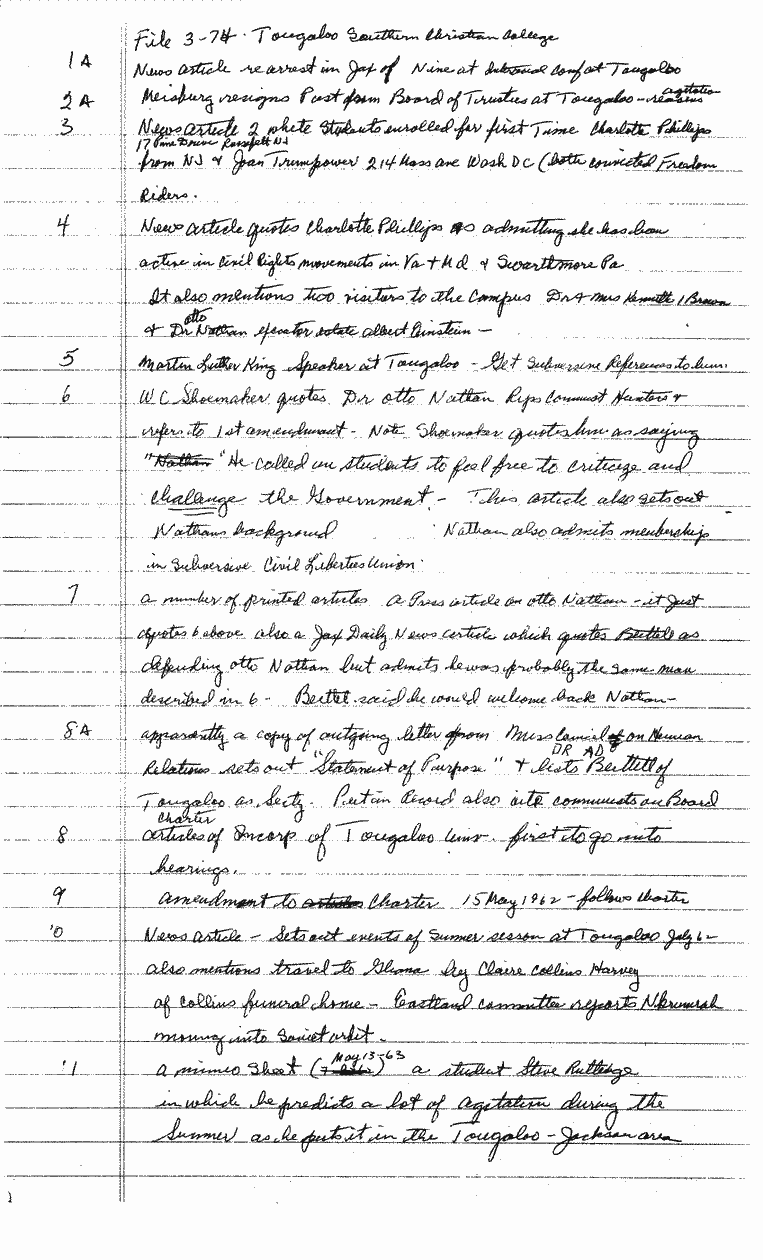 File 3-74. Tougaloo Southern Christian College
1A News article re arrest in Jax of Nine at Interracial conf at Tougaloo
agitation
2A Meisburg resigns Post from Board of Trustees at Tougaloo - reasons
3 News Article 2 white Students enrolled for first Time Charlotte Phillips
17 Pine Drive Roosevelt NJ
from NJ & Joan Trumpower 214 Mass ave Wash DC (both convicted Freedom
Riders.
4 News article quotes Charlotte Phillips as admitting she has been
active in Civil Rights movements in Va + Md & Swarthmore Pa
It also mentions two visitors to the Campus Dr & Mrs Kenneth I Brown
otto
& Dr Nathan executor estate albert Einstein -
5 Martin Luther King Speaker at Tougaloo - Get Subversive References to him.
6 W C Shoemaker quotes Dr otto Nathan Rips Commust Hunters &
refers to 1st amendment - Note Shoemaker quotes him as saying
"Nathan "He called on students to feel free to criticize and
challenge the Government. - This article also sets out
Nathans background Nathan also admits membership
in Subversive Civil Liberties Union.
7 a number of printed articles a Press article on otto Nathan - it Just
quotes 6 above also a Jax Daily News article which quotes Beittel as
defending otto Nathan but admits he was probably the same man
described in 6 - Beittel said he would welcome back Nathan -
8A apparently a copy of outgoing letter from Miss Council of on Human
DR AD
Relations sets out "Statement of Purpose" & lists Beittel of
Tougaloo as Secty. Put in Record also communists on Board
Charter
8 articles of Incorp of Tougaloo Univ. first to go into
hearings.
9 amendment to articles Charter 15 May 1962 - follows Charter
10 News Article - Sets out events of Summer session at Tougaloo July 62
also mentions travel to Ghana by Claire Collins Harvey
of Collins funeral home - Eastland committee reports Nkrumah
moving into Soviet orbit.
May 13-63
11 a mimeo Sheet ( ) a student Steve Rutledge
in which he predicts a lot of agitation during the
Summer as he puts it in the Tougaloo - Jackson area